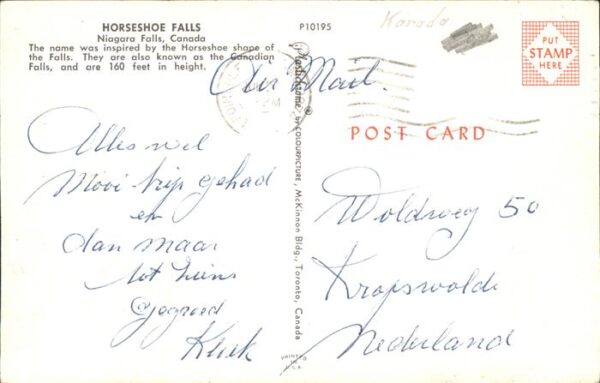 HORSESHOE FALLS
Niagara Falls, Canada
The name was inspired by the Horseshoe shape of
the Falls. They are also known as the Canadian
Falls, and are 160 feet in height.
P10195
Kanada
PUT
STAMP
HERE
Air Mail.
Plastichrome ® by COLOURPICTURE, McKinnon Bldg., Toronto, Canada
POST CARD
Alles wel
Mooi trip gehad
en
dan maar
tot ziens
Gegroed
Woldweg 50
Kropswolde
Nederland
PRINTED
IN
U.S.A.